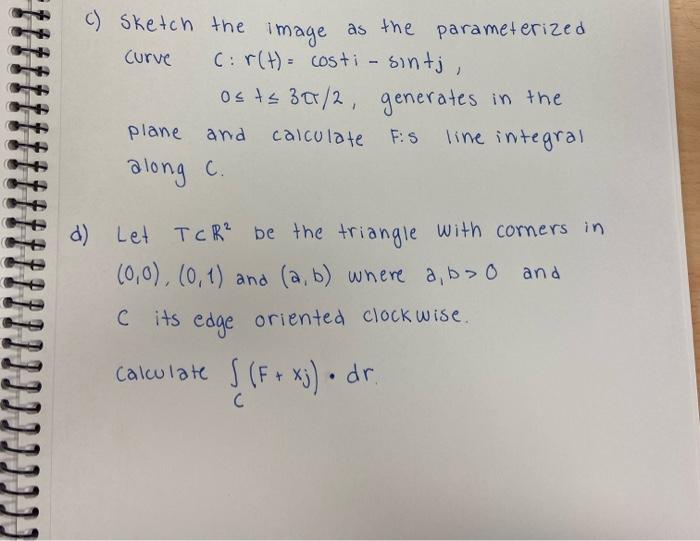 c) Sketch the image as the parameterized
curve C: r(t) = costi - sintj,
0 ≤ t ≤ 3π/2, generates in the
plane and calculate F:s line integral
along C.
d) Let T⊂ℝ² be the triangle with corners in
(0,0), (0,1) and (a,b) where a,b>0 and
C its edge oriented clockwise.
Calculate ∫_C (F + xj) • dr.